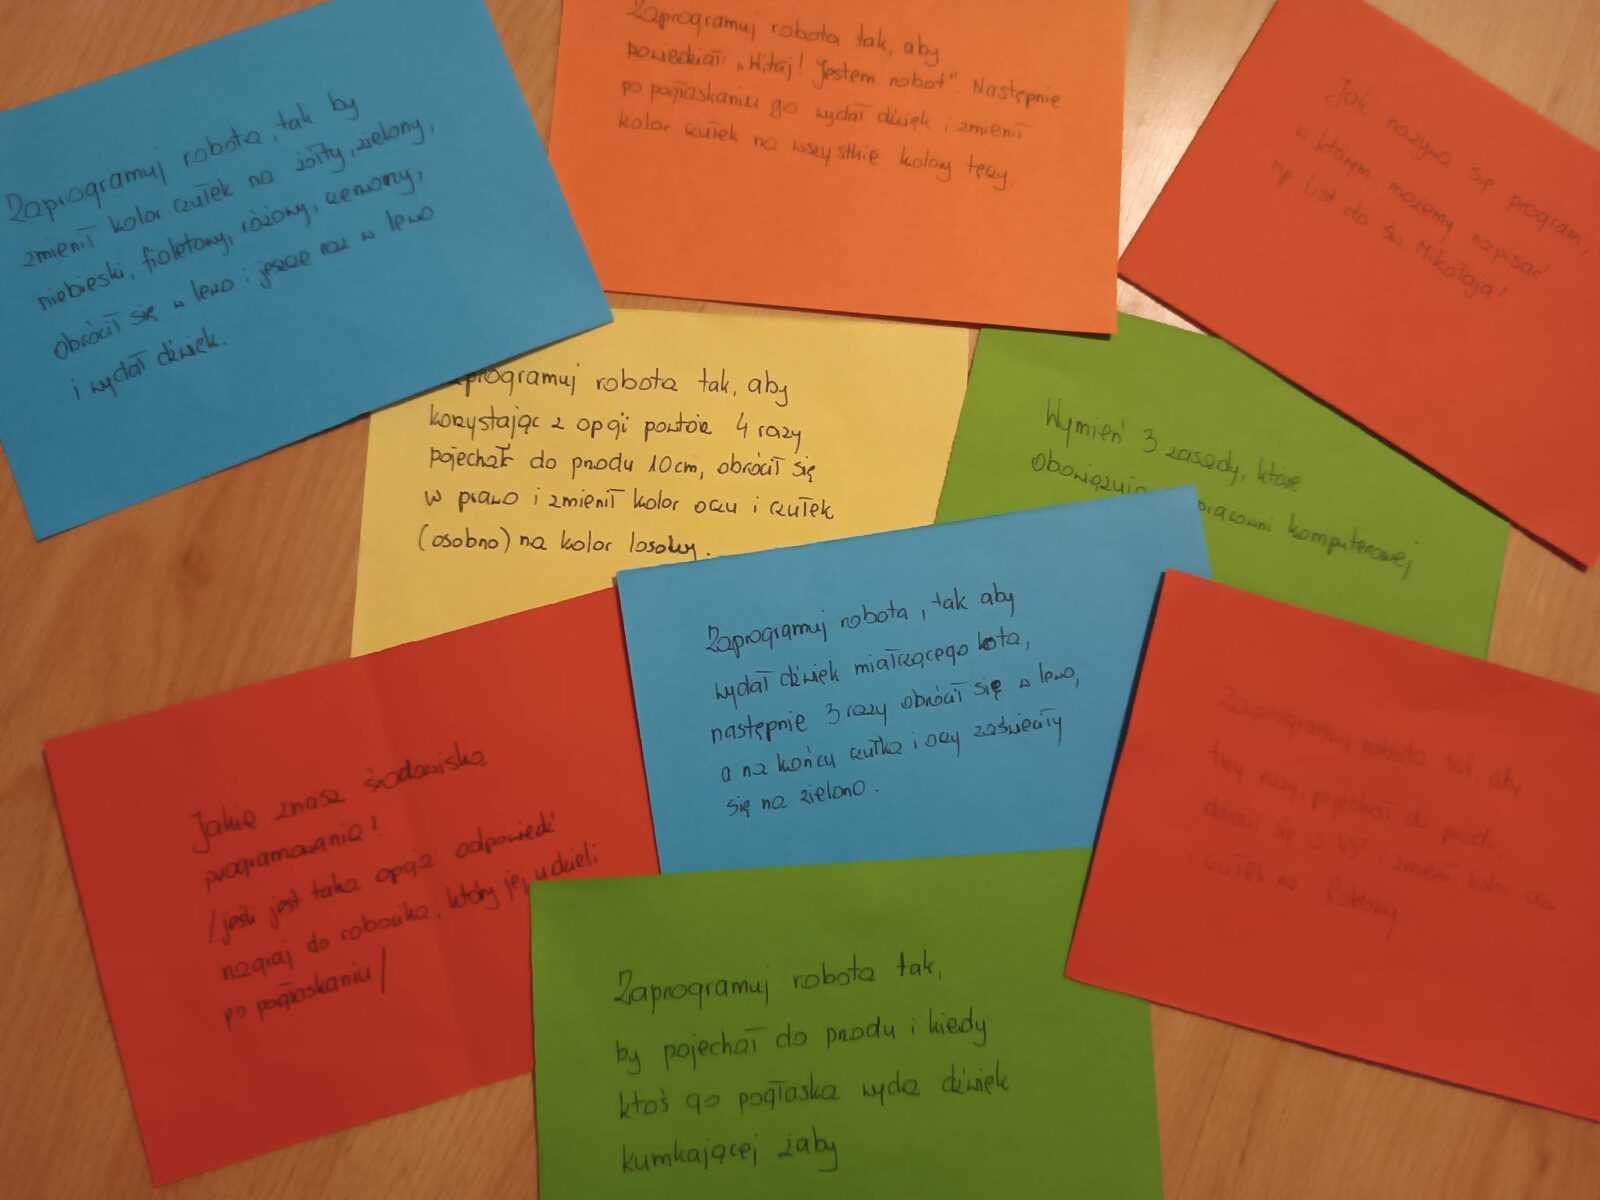 Zaprogramuj robota, tak by
zmienił kolor czułek na żółty, zielony,
niebieski, fioletowy, różowy, czerwony,
obrócił się w lewo i jeszcze raz w lewo
i wydał dźwięk.
Zaprogramuj robota tak, aby
powiedział: „Witaj! Jestem robot". Następnie
po pogłaskaniu go wydał dźwięk i zmienił
kolor czułek na wszystkie kolory tęczy.
Jak nazywa się program,
w którym możemy napisać
np list do św Mikołaja?
Zaprogramuj robota tak, aby
korzystając z opcji powtórz 4 razy
pojechał do przodu 10cm, obrócił się
w prawo i zmienił kolor oczu i czułek
(osobno) na kolor losowy.
Wymień 3 zasady, które
obowiązują pracowni komputerowej
Jakie znasz środowiska
programowania?
/jeśli jest taka opcja odpowiedź
nagraj do robocika, który jej udzieli
po pogłaskaniu/
Zaprogramuj robota, tak aby
wydał dźwięk miałczącego kota,
następnie 3 razy obrócił się w lewo,
a na końcu czułka i oczy zaświeciły
się na zielono.
Zaprogramuj robota tak, aby
trzy razy, pojechał do przodu,
i zmienił kolor oczu
i czułek na
Zaprogramuj robota tak,
by pojechał do przodu i kiedy
ktoś go pogłaska wyda dźwięk
kumkającej żaby